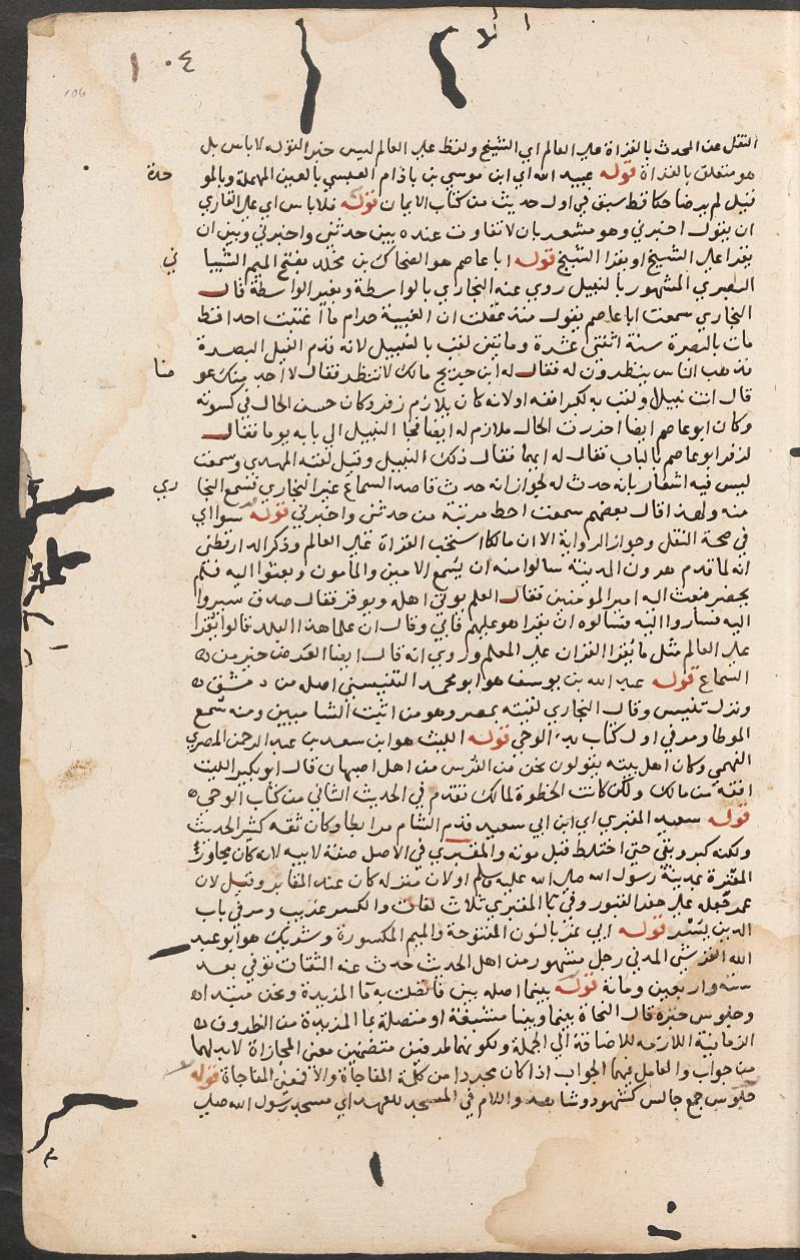 ١٠٤
106
النقل عن المحدث بالقراة على العالم اي الشيخ ولفظ على العالم ليس خبرا لقوله لاباس بل
هو متعلق بالقراة قوله عبيد الله اي ابن موسي بن باذام العبسي بالعين المهملة وبالمو
حدة
قبل لم ير ضاحكا قط سبق في اول حديث من كتاب الايمان قوله فلا باس اي على القاري
ان يقول اخبرني وهو مشعر بان لا تفاوت عنده بين حدثني واخبرني وبين ان
يقرا على الشيخ او يقرا الشيخ قوله ابا عاصم هو الضحاك بن مخلد بفتح الميم الشيبا
ني
البصري المشهور بالنبيل روي عنه البخاري بالواسطة وبغير الواسطة قال
البخاري سمعت ابا عاصم يقول منذ عقلت ان الغيبة حرام ما اغتبت احدا قط
مات بالبصرة سنة اثنتي عشرة ومايتين لقب بالنبيل لانه قدم الفيل البصرة
فذهب الناس ينظرون له فقال له ابن جريج مالك لا تنظر فقال لا اجد منك عو
ضا
قال انت نبيل ولقب به لكبر انفه او لانه كان يلازم زفر وكان حسن الحال في كسوته
وكان ابو عاصم ايضا اخر رث الحال ملازم له ايضا فجا النبيل الي بابه يوما فقال
لزفر ابو عاصم بالباب فقال له ايهما فقال ذلك النبيل وقيل لقبه المهدي وسمعت
ليس فيه اشعار بانه حدث له لجواز انه حدث قاصد السماع غير البخاري فسمع البخا
ري
منه ولهذا قال بعضهم سمعت احط مرتبة من حدثني واخبرني قوله سوا اي
في صحة النقل وجواز الرواية الا ان مالكا استحب القراة على العالم وذكر الدارقطني
انه لما قدم هرون المدينة سالوا منه ان يسمع الامين والمامون وبعثوا اليه فلم
يحضر فبعث اليه امير المومنين فقال العلم يوتي اهله ويوقر فقال صدق سيروا
اليه فساروا اليه فسالوه ان يقرا هو عليهم فابي وقال ان علما هذا البلد قالوا يقرا
على العالم مثل ما يقرا القران على المعلم وروي انه قال ايضا العرض خير من
السماع قوله عبد الله بن يوسف هو ابو محمد التنيسي اصله من دمشق
ونزل تنيس وقال البخاري لقيته بمصر وهو من اثبت الشاميين ومنه سمع
الموطا ومر في اول كتاب بدء الوحي قوله الليث هو ابن سعد بن عبد الرحمن المصري
الفهمي وكان اهل بيته يقولون نحن من الفرس من اهل اصبهان قال ابو بكير الليث
افقه من مالك ولكن كانت الحظوة لمالك تقدم في الحديث الثاني من كتاب الوحي
قوله سعيد المقبري اي ابن ابي سعيد قدم الشام مرابطا وكان ثقه كثير الحديث
ولكنه كبر وبقي حتي اختلط قبل موته والمقبري في الاصل صفة لابيه لانه كان مجاور
المقبرة بمدينة رسول الله صلى الله عليه وسلم او لان منزله كان عند المقابر وقيل لان
عمر جعله على حفر القبور وفي با المقبري ثلاث لغات والكسر غريب ومر في باب
الدين يسر قوله ابي نمر بالنون المفتوحة والميم المكسورة وشريك هو ابو عبد
الله القرشي المدني رجل مشهور من اهل الحديث حدث عنه الثقات توفي بعد
سنة واربعين ومائة قوله بينما اصله بين فاتصلت به ما المزيدة ونحن مبتدا
وجلوس خبره قال النحاة بينما وبينا مشبعة او متصلة بما المزيدة من الظروف
الزمانية اللازمة للاضافة الي الجملة ولكونهما ظرفين متضمنين معني المجازاة لابد لهما
من جواب والعامل فيهما الجواب اذا كان مجردا من كلمة المفاجاة والا فمعني المفاجاة قوله
جلوس جمع جالس كشهود وشاهد واللام في المسجد للعهد اي مسجد رسول الله صلى